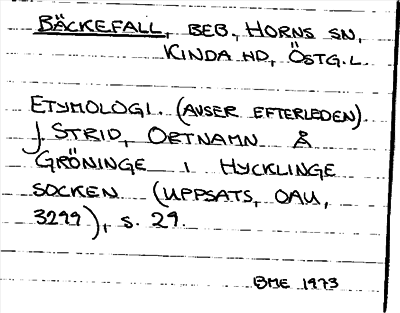 BÄCKEFALL, BEB, HORNS SN,
KINDA HD, ÖSTG.L.
ETYMOLOGI. (AVSER EFTERLEDEN).
J. STRID, ORTNAMN Å
GRÖNINGE I HYCKLINGE
SOCKEN (UPPSATS, OAU,
3299), s. 29.
BME 1973